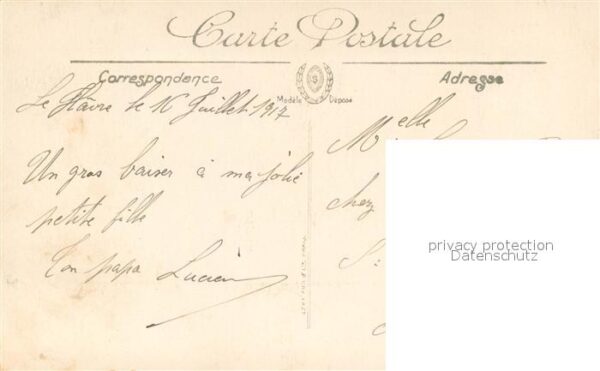 Carte Postale
Correspondance
Adresse
Modèle Déposé
Le Hâvre le 16 Juillet 1917
Melle
Un gros baiser à ma jolie
chez
petite fille
Ton papa Lucien
privacy protection
Datenschutz